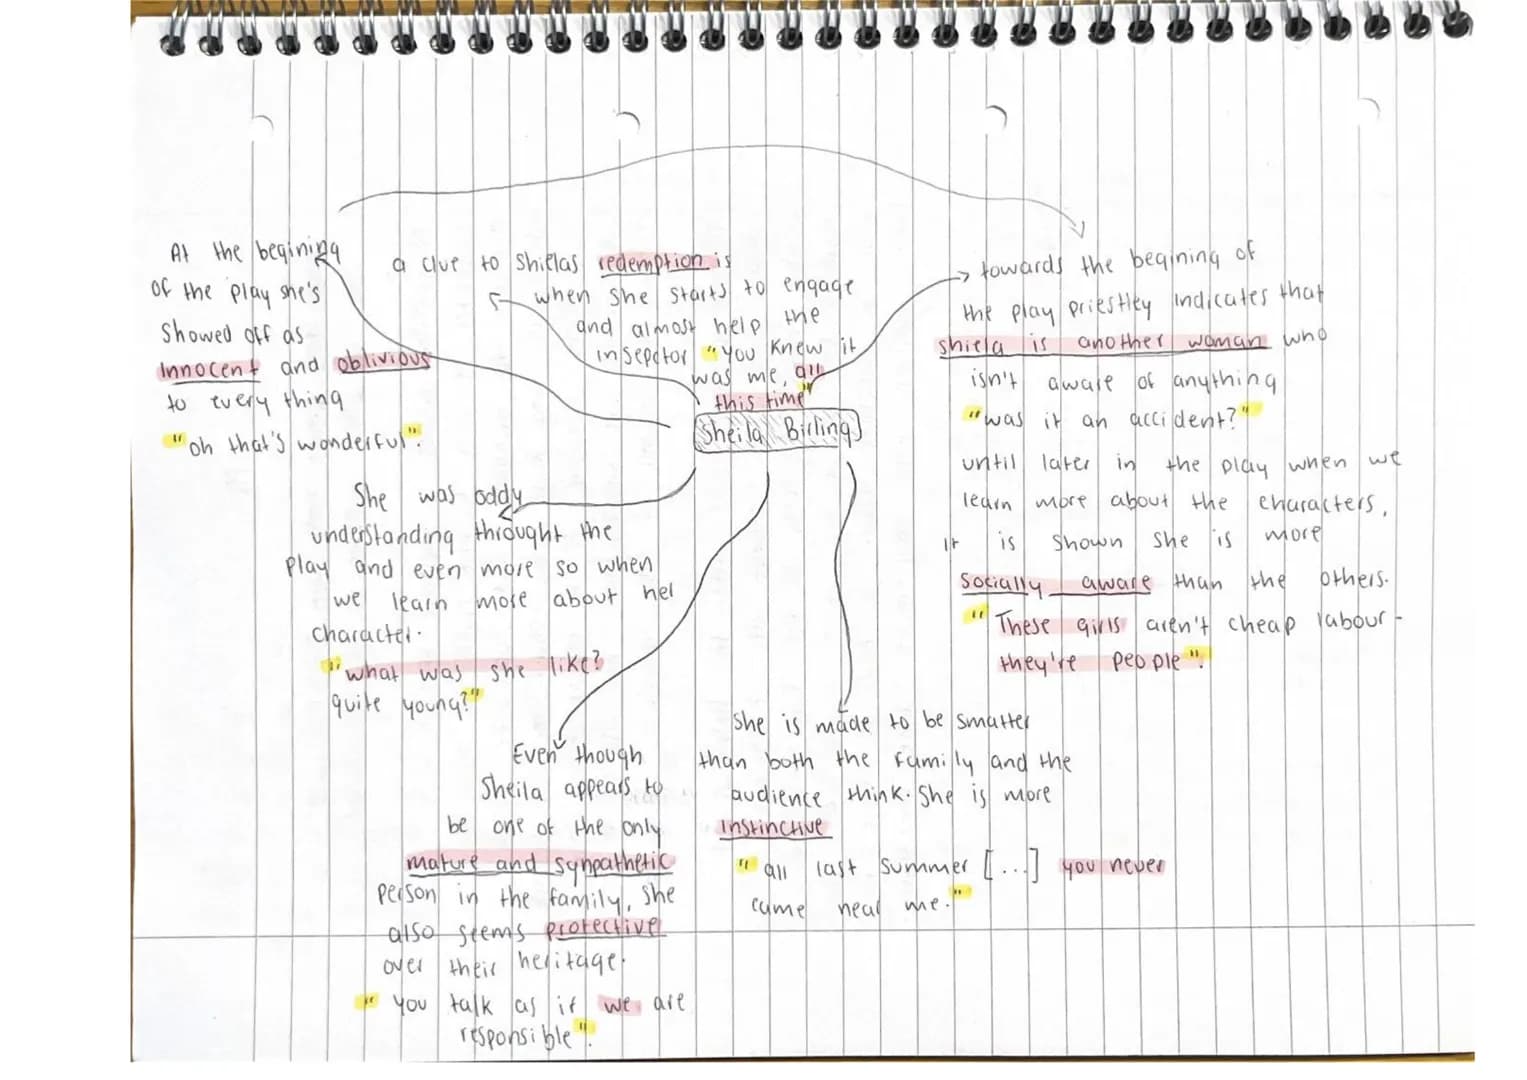 At the begining
of the play she's
showed off as
innocent and oblivious
to every thing
"oh that's wonderful".
a clue to Shielas redemption is
when she starts to engage
and almost help the
insepctor "you knew it
was me, all
this time"
towards the begining of
the play priestley indicates that
shiela is another woman who
isn't aware of anything
"was it an accident?"
until later in the play when we
learn more about the characters,
it is shown she is more
socially aware than the others.
"These girls aren't cheap labour -
they're people".
Sheila Birling
She was oddy
understanding throught the
play and even more so when
we learn more about her
character.
"what was she like?
quite young?"
Even though
Sheila appears to
be one of the only
mature and sympathetic
person in the family, she
also seems protective
over their heritage.
"you talk as if we are
responsible".
She is made to be smarter
than both the family and the
audience think. She is more
instinctive
"all last summer [...] you never
came near me."